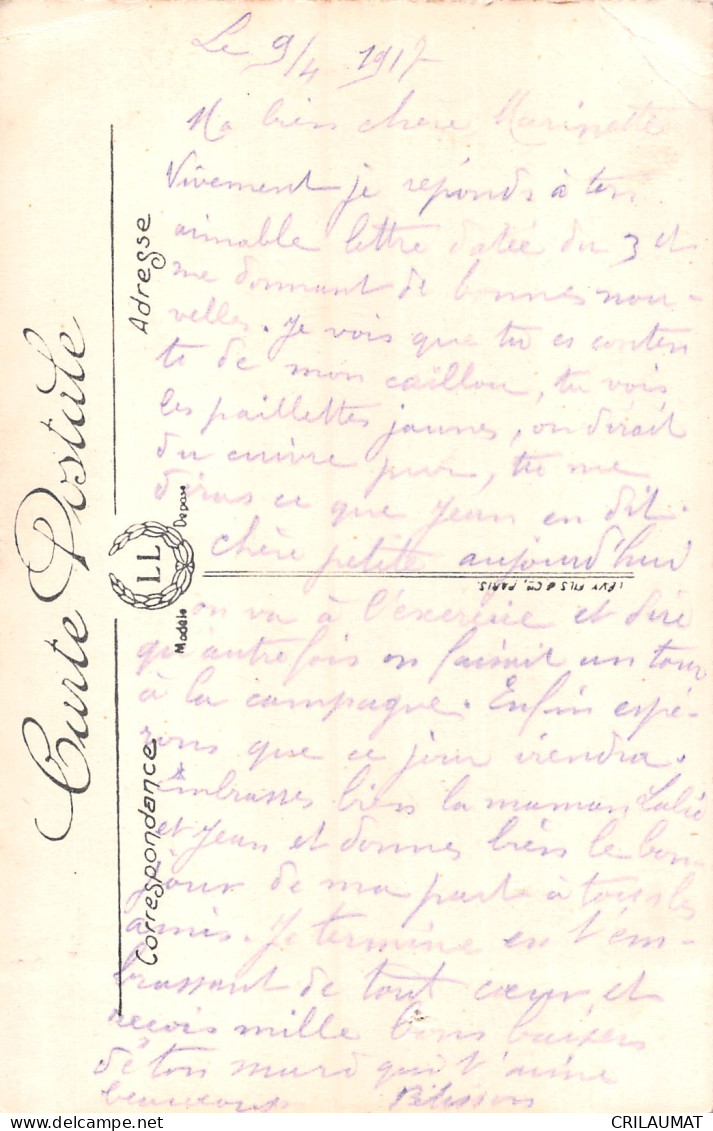 Le 9/4 1917
Ma bien chere Marinette
Vivement je réponds à ton
aimable lettre datée du 3 et
me donnant de bonnes nou-
velles. Je vois que tu es conten
te de mon caillou, tu vois
les paillettes jaunes, on dirait
du cuivre pur, tu me
diras ce que Jean en dit.
chère petite aujourd'hui
on va à l'exercice et dire
qu'autrefois on faisait un tour
à la campagne. Enfin espé-
rons que ce jour viendra.
Embrasses bien la maman Lalie
et Jean et donnes bien le bon-
jour de ma part à tous les
amis. Je termine en t'em-
brassant de tout cœur et
reçois mille bons baisers
de ton mari qui t'aime
beaucoup
Carte Postale
Adresse
Correspondance
LL
Modèle Déposé
LÉVY FILS & Cie, PARIS.
CRILAUMAT